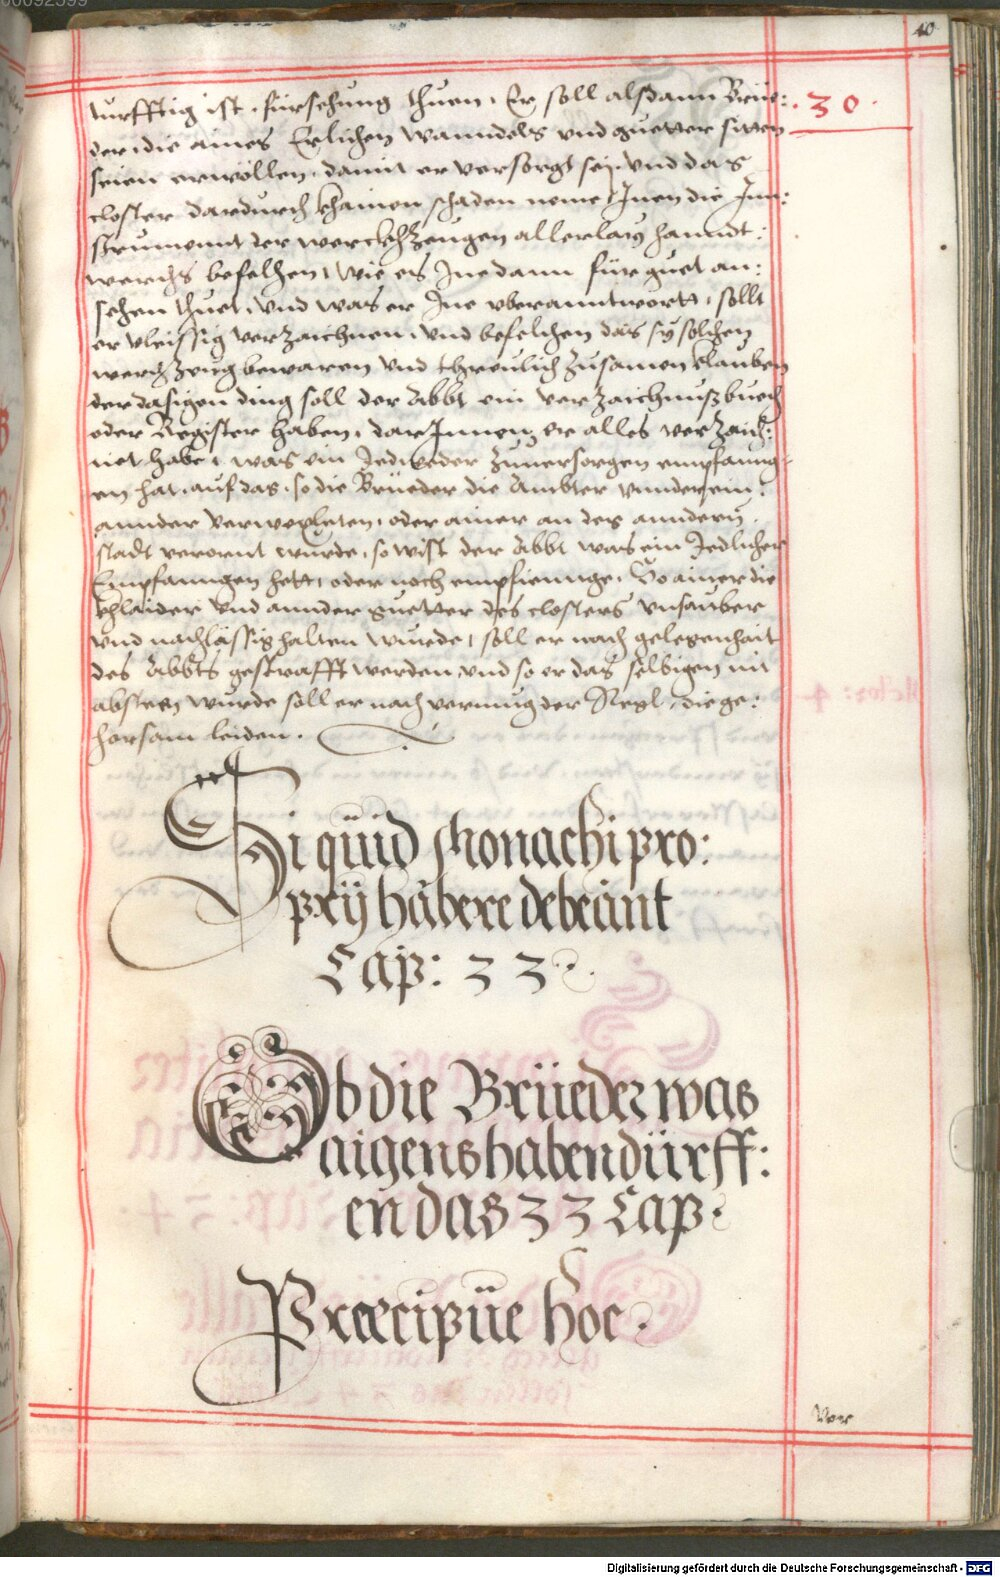 40
turfftig ist, fürsehung thuen, Er soll alsdann Brüe:
.30.
der, die aines Erlichen wanndels und guetter sitten
seien erwöllen, damit er versorgt sej, und das
closter dardurch khainen schaden neme, Inen die Inn:
strument der werckhzeugen allerlay hanndt:
werchs befelhen, wie es Ine dann für guet an:
sehen thuet, und was er Ine uberanntwortt, sollt
er vleissig verzaichnen, und befelchen das sy solchen
werchzeug bewaren und threulich zusamen klauben
der dasigen ding soll der Abbt ein verzaichnuß buech
oder Register haben, dar Innen er alles verzaich:
net habe, was ein Jedweder zuuersorgen empfanng:
en hat, auf das, so die Brüeder die Ambter unnderein:
annder verwexleten, oder ainer an des anndern
stadt verornt wurde, so wist der Abbt was ein Jedlicher
Empfanngen hett, oder noch empfiennge. So ainer die
khlaider und annder guetter des closters unsauber
und nachlässig halten wurde, soll er nach gelegenhait
des Abbts gestrafft werden, und so er das selbigen nit
absteen wurde soll er nach vermug der Regl, die ge:
horsam leiden.
Si quid Monachi pro:
prij habere debeant
Cap: 33.
Ob die Brüeder was
aigens haben dürff:
en das 33 Cap.
Præcipüe hoc.
Vor
Digitalisierung gefördert durch die Deutsche Forschungsgemeinschaft - DFG